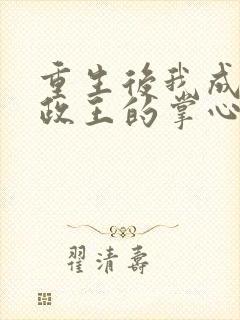 重生後我成
政王的掌心
翟清壽